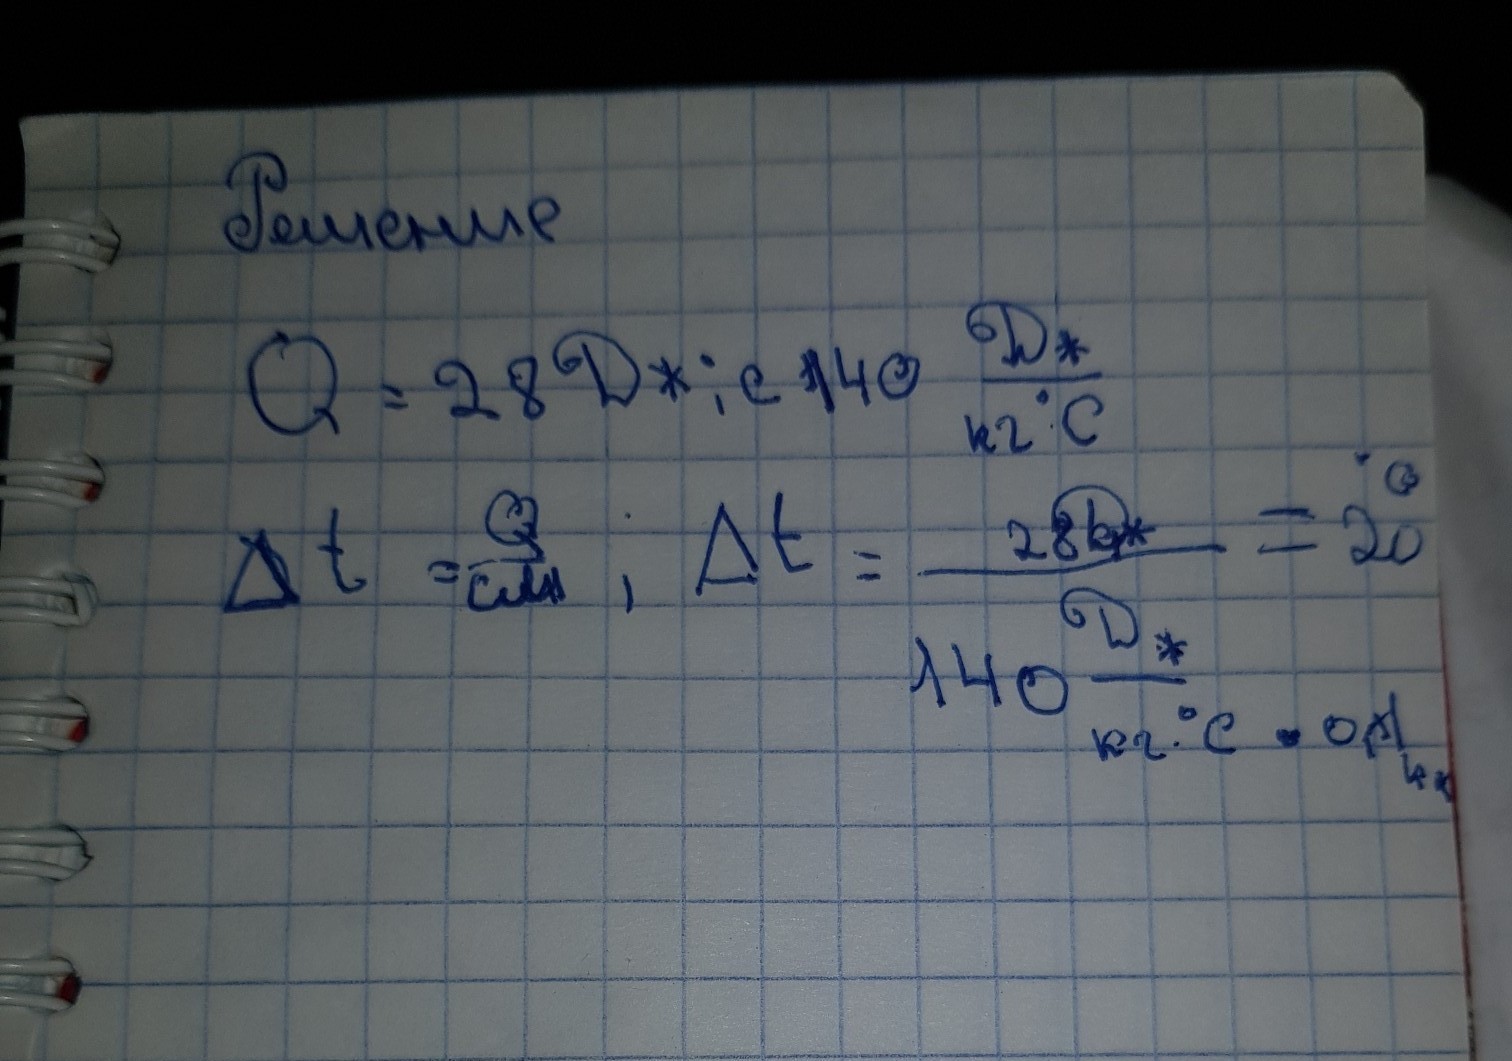 Решение
Q = 28 Дж; c 140 Дж/кг·°C
Δt = Q/cm, Δt = 28Дж/140 Дж/кг·°C · 0,1 кг = 20°